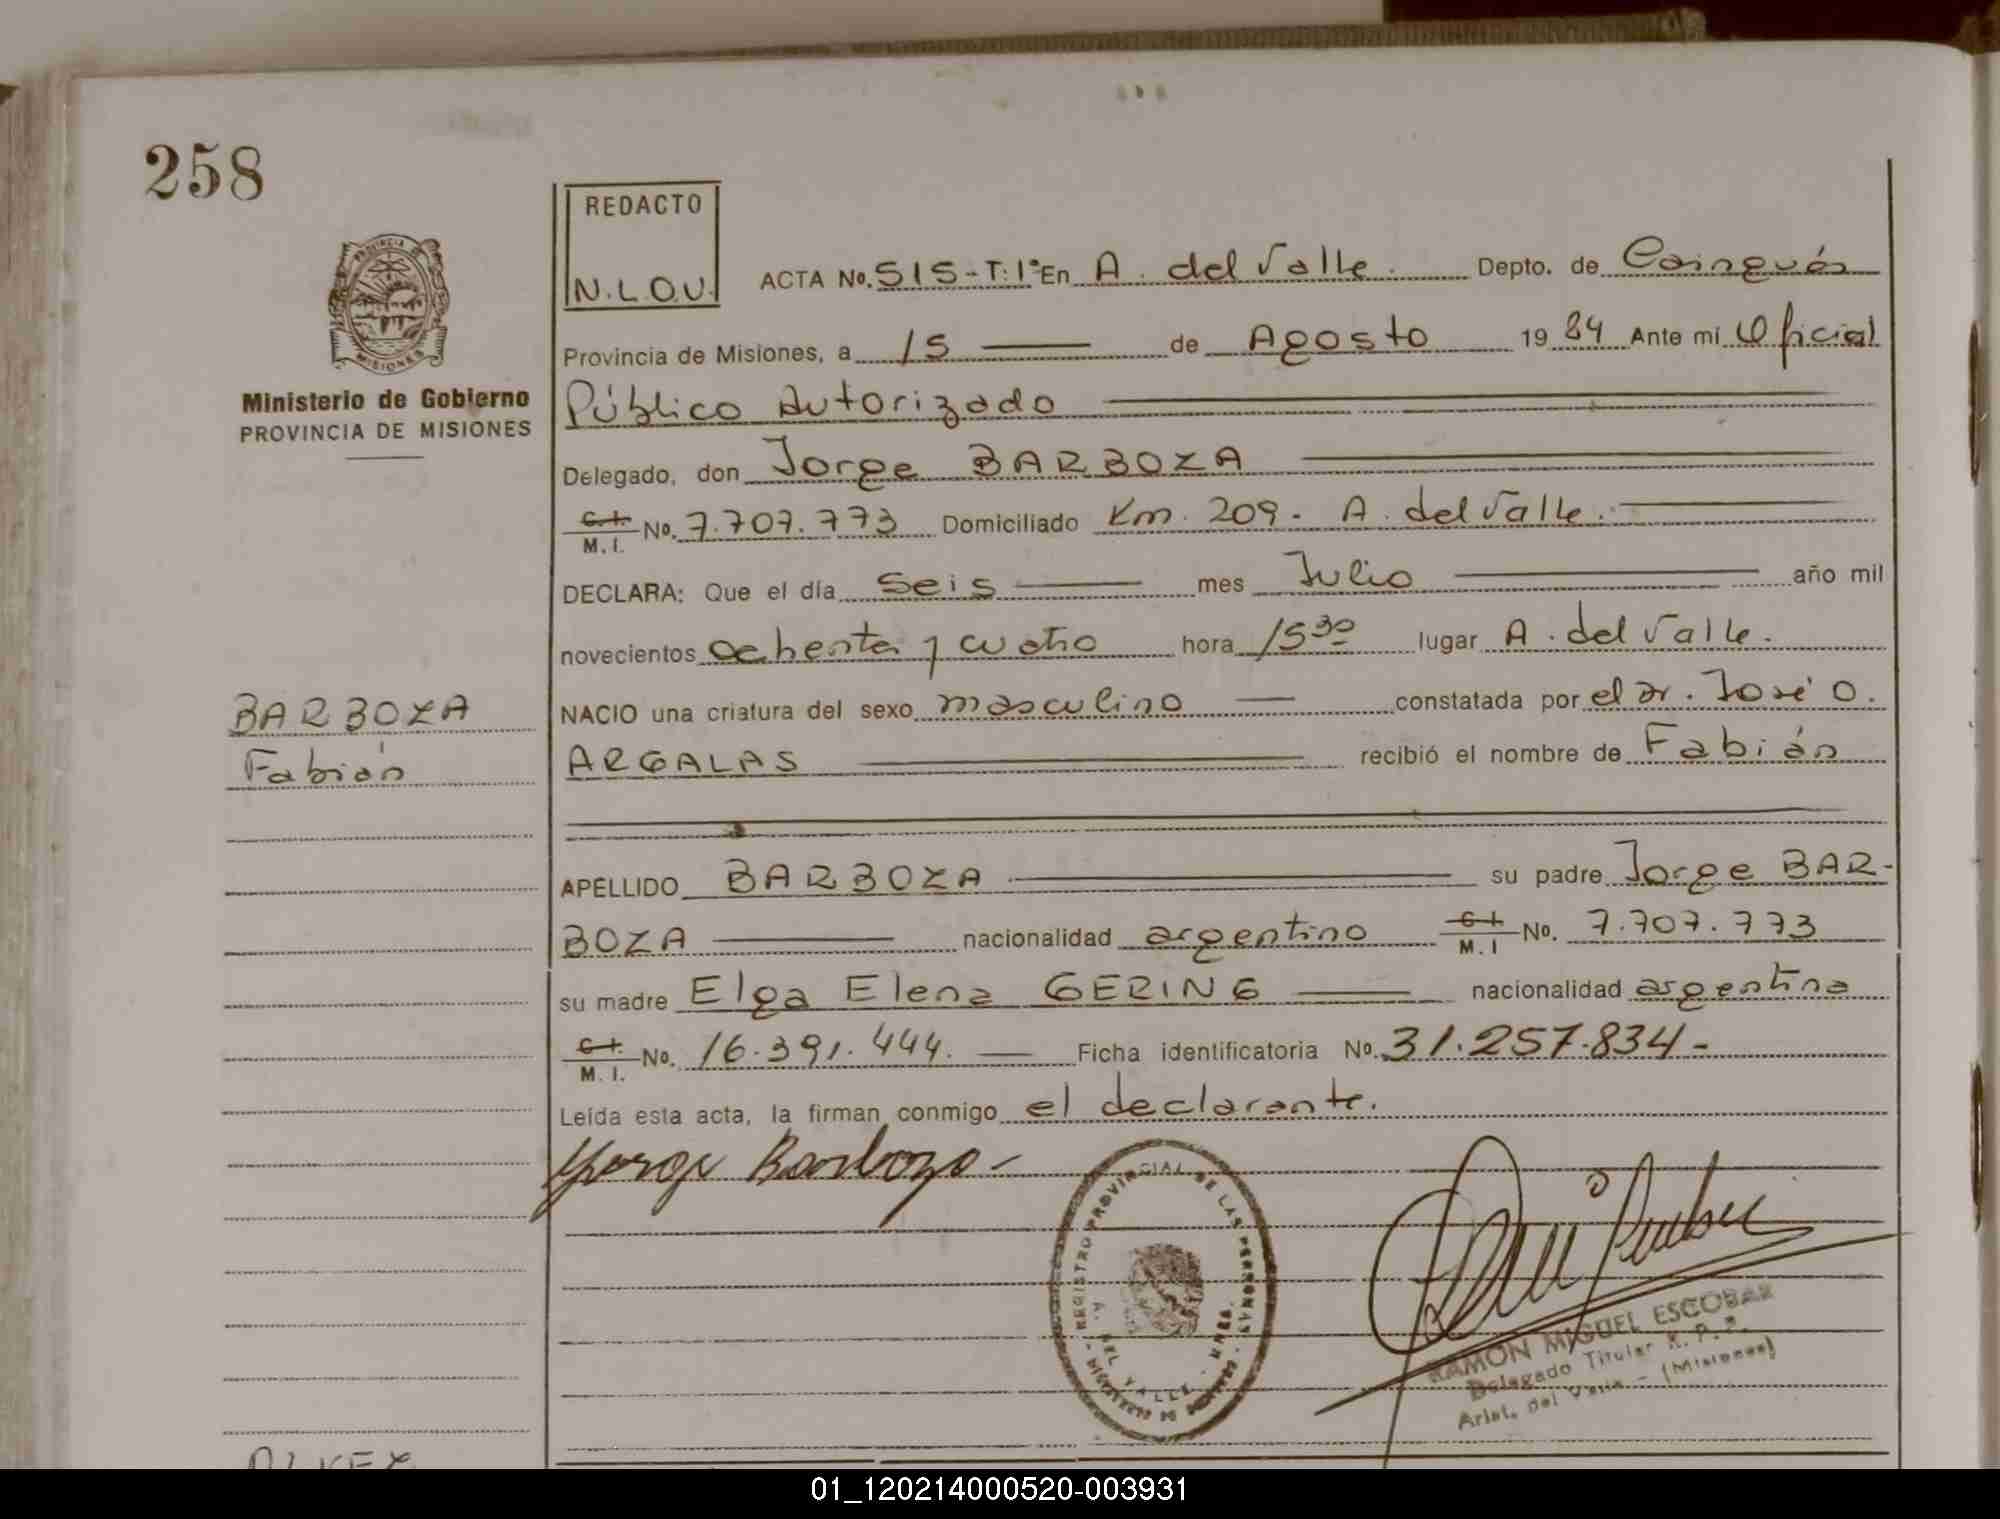 258
REDACTO
N.L.O.V.
PROVINCIA DE
MISIONES
Ministerio de Gobierno
PROVINCIA DE MISIONES
ACTA No. 515-T:1º En A. del Valle. Depto. de Cainguás
Provincia de Misiones, a 15 de Agosto 1984 Ante mí Oficial
Público Autorizado
Delegado, don Jorge BARBOZA
C.I. M.I. No. 7.707.773 Domiciliado Km. 209- A. del Valle.
DECLARA: Que el día Seis mes Julio año mil
novecientos ochenta y cuatro hora 15 30 lugar A. del Valle.
NACIO una criatura del sexo masculino constatada por el Dr. José O.
ARGALAS recibió el nombre de Fabián
BARBOZA
Fabián
APELLIDO BARBOZA su padre Jorge BAR-
BOZA nacionalidad argentino C.I. M.I No. 7.707.773
su madre Elga Elena GERING nacionalidad argentina
C.I. M.I. No. 16.391.444. Ficha identificatoria No. 31.257.834-
Leída esta acta, la firman conmigo el declarante.
Jorge Barboza-
REGISTRO PROVINCIAL DE LAS PERSONAS
A. DEL VALLE
RAMON MIGUEL ESCOBAR
Delegado Titular R. P. P.
Arist. del Valle - (Misiones)
01_120214000520-003931